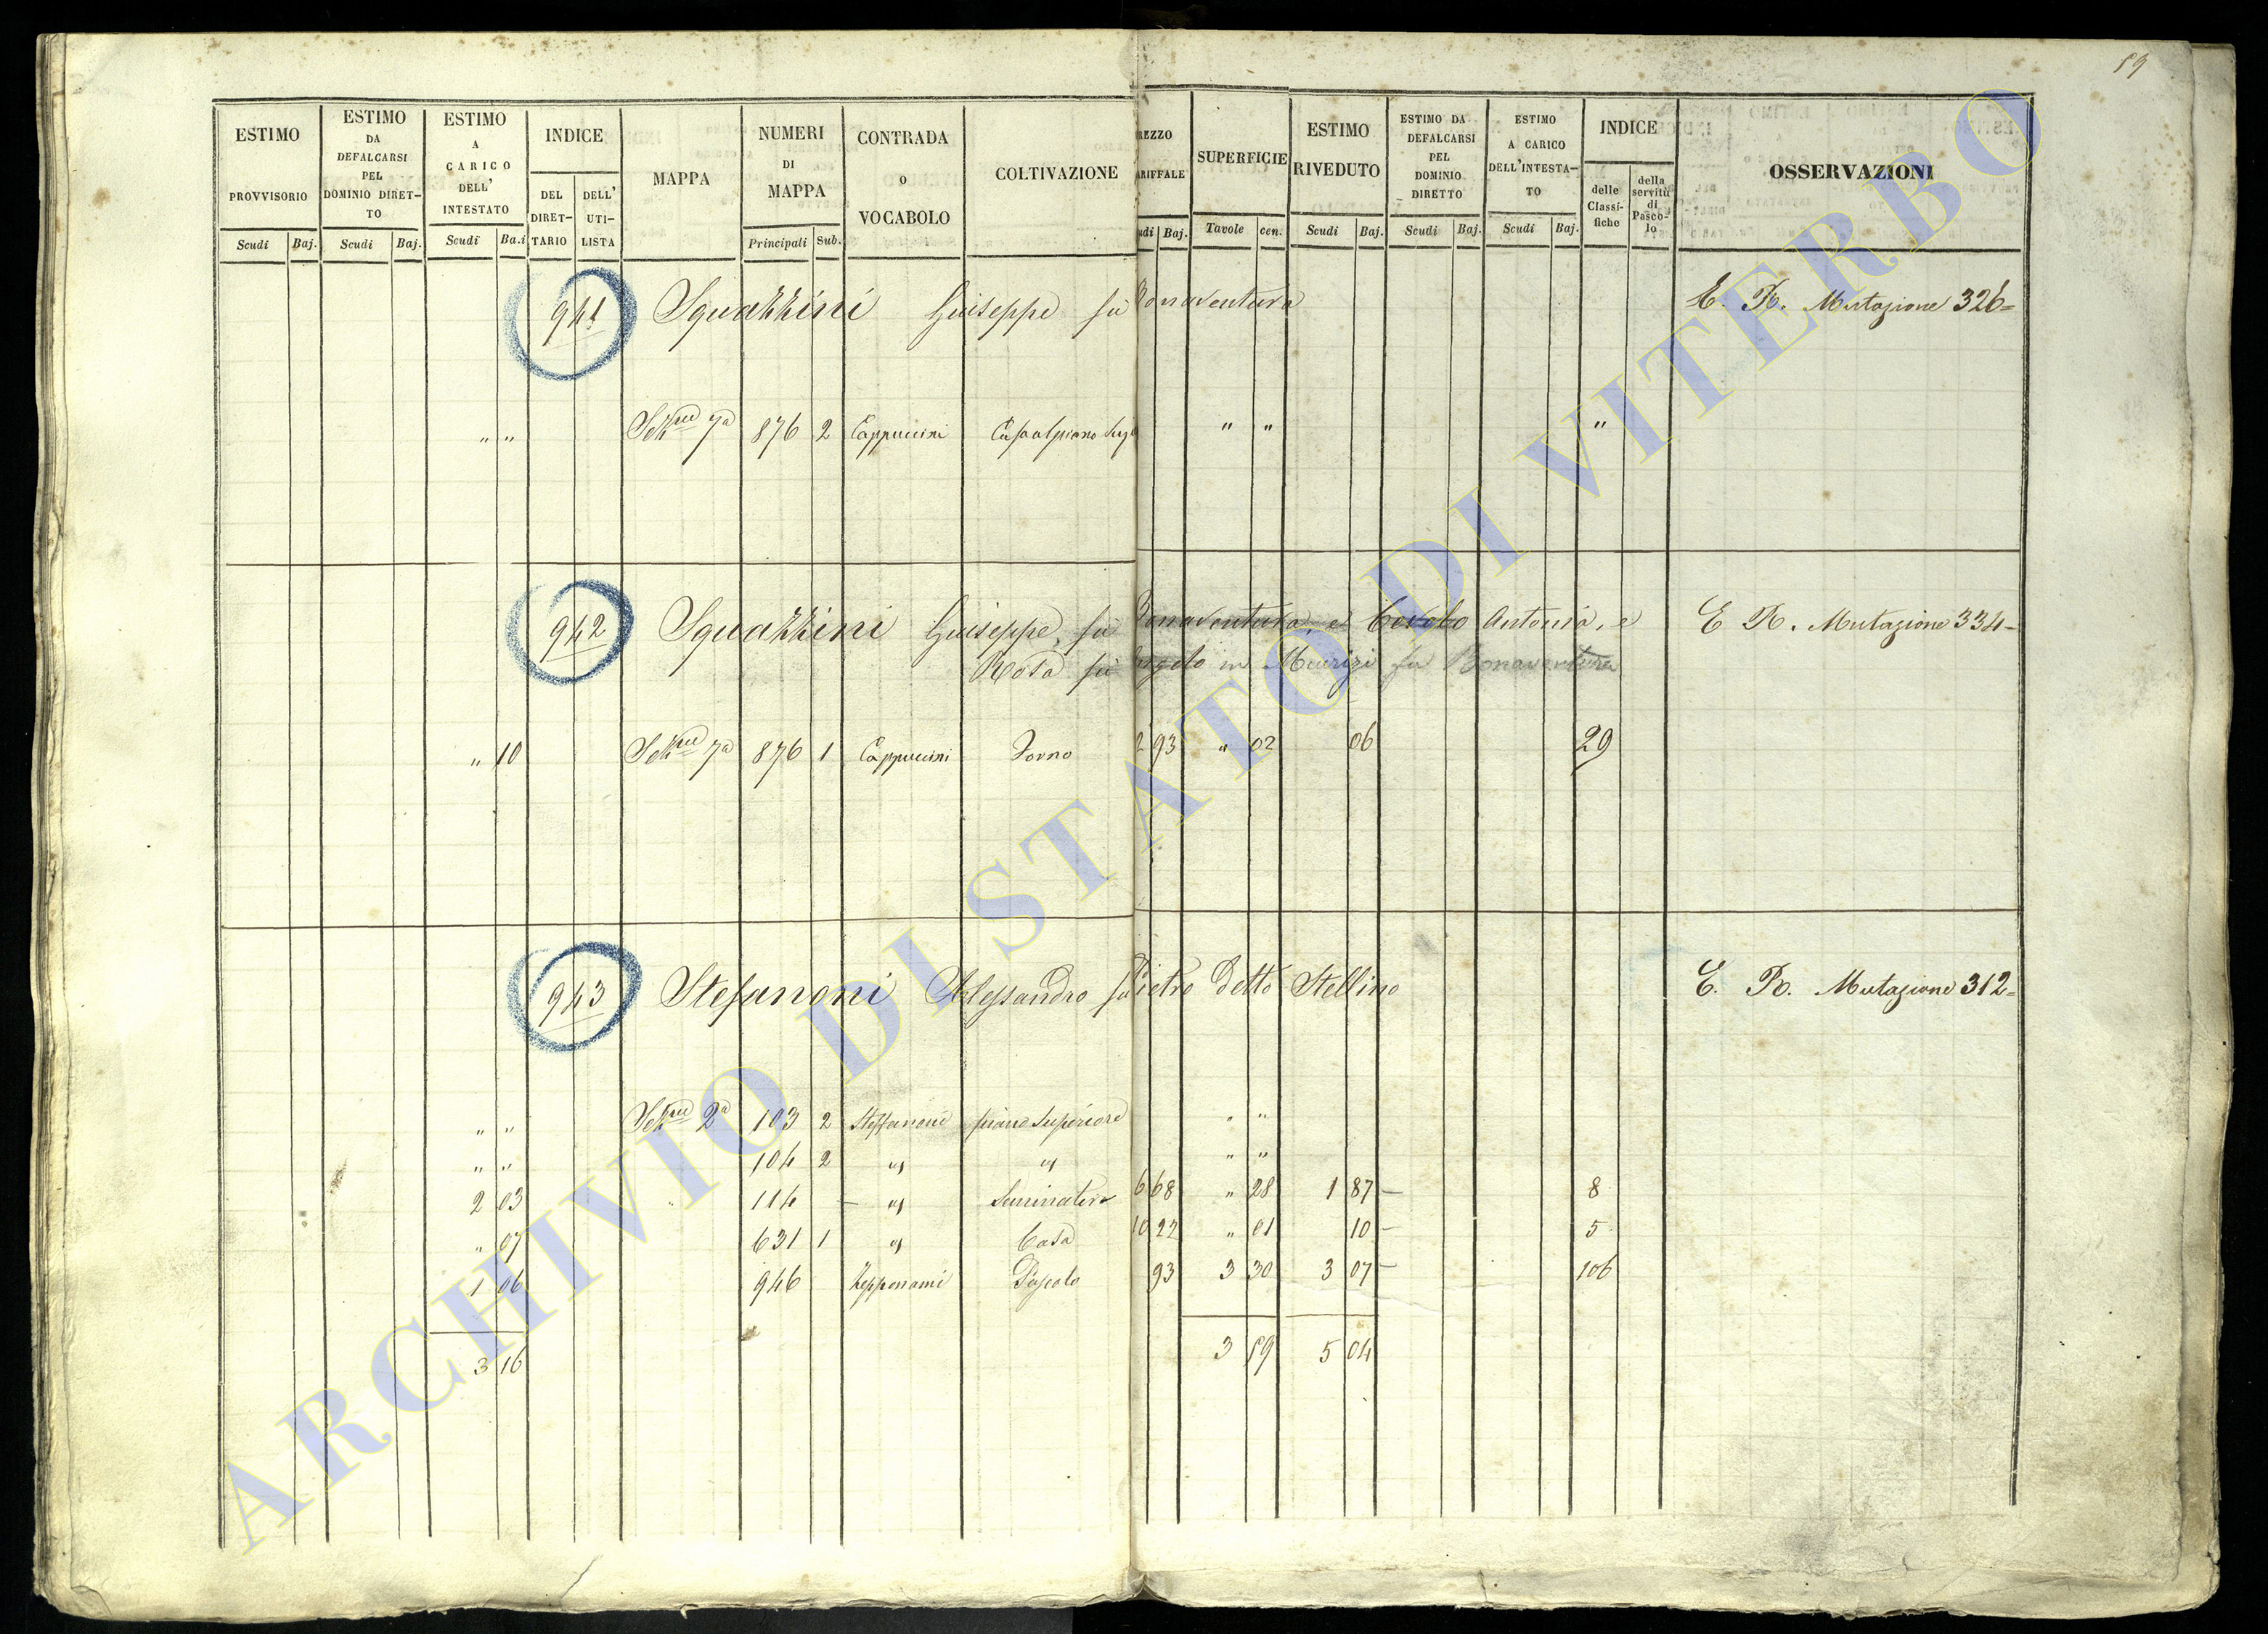 59
ESTIMO PROVVISORIO
ESTIMO DA DEFALCARSI PEL DOMINIO DIRET-TO
ESTIMO A CARICO DELL' INTESTATO
INDICE
DEL DIRET-TARIO
DELL' UTI-LISTA
MAPPA
NUMERI DI MAPPA
CONTRADA o VOCABOLO
COLTIVAZIONE
REZZO ARIFFALE
SUPERFICIE
ESTIMO RIVEDUTO
ESTIMO DA DEFALCARSI PEL DOMINIO DIRETTO
ESTIMO A CARICO DELL'INTESTA-TO
INDICE
delle Classi-fiche
della servitù di Pasco-lo
OSSERVAZIONI
Scudi Baj. Scudi Baj. Scudi Ba.i Principali Sub. udi Baj. Tavole cen. Scudi Baj. Scudi Baj. Scudi Baj.
941 Squazzini Giuseppe fu Bonaventura E. R. Mutazione 326=
" " Sez.ne 7a 876 2 Cappuccini Casa al piano " " "
942 Squazzini Giuseppe, fu Bonaventura, e Antonia, e E R. Mutazione 334=
Rosa fu Angelo in Maurizi fu Bonaventura
" 10 Sez.ne 7a 876 1 Cappuccini Forno 2 93 " 02 06 29
943 Stefanoni Alessandro fu Pietro detto Stellino E. R. Mutazione 312=
" " Sez.ne 2a 103 2 Steffanoni piano superiore " "
" " 104 2 " " " "
2 03 114 — " Seminativo 6 68 " 28 1 87 — 8
" 07 631 1 " Casa 10 22 " 01 10 — 5
1 06 946 Zepponami Pascolo 93 3 30 3 07 — 106
3 16 3 59 5 04
ARCHIVIO DI STATO DI VITERBO